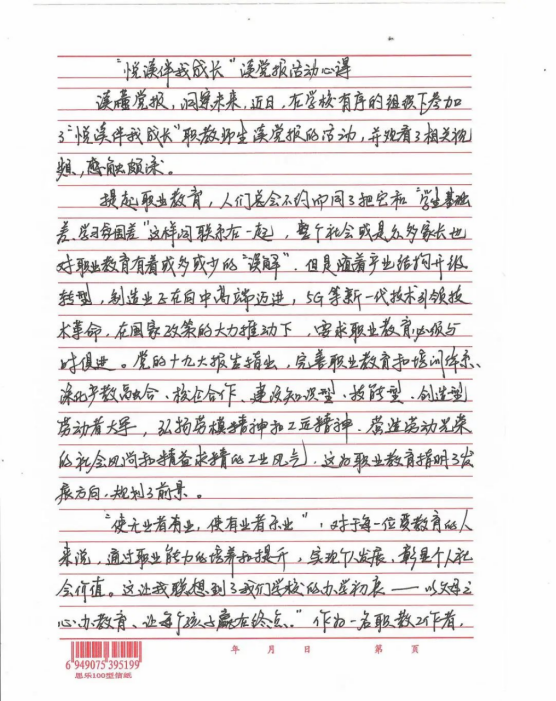 "悦读伴我成长"读党报活动心得
读懂党报，洞察未来，近日，在学校有序的组织下参加
了"悦读伴我成长"职教师生读党报的活动，并观看了相关视
频，感触颇深。
提起职业教育，人们总会不约而同了把它和"学生基础
差、学习氛围差"这样词联系在一起，整个社会或是众多家长也
对职业教育有着或多或少的"误解"。但是随着产业结构升级
转型，制造业正在向中高端迈进，5G等新一代技术引领技
术革命，在国家政策的大力推动下，要求职业教育必须与
时俱进。党的十九大报告指出，完善职业教育和培训体系、
深化产教融合、校企合作、建设知识型、技能型、创造型
劳动者大军，弘扬劳模精神和工匠精神，营造劳动光荣
的社会风尚和精益求精的工业风气，这为职业教育指明了发
展方向，规划了前景。
"使无业者有业，使有业者乐业"，对于每一位受教育的人
来说，通过职业能力的培养和提升，实现个人发展、彰显个人社
会价值。这让我联想到了我们学校的办学初衷——以父母之
心办教育、让每个孩子赢在终点。"作为一名职教工作者，
6 949075 395199
思乐100型信纸
年 月 日 第 页